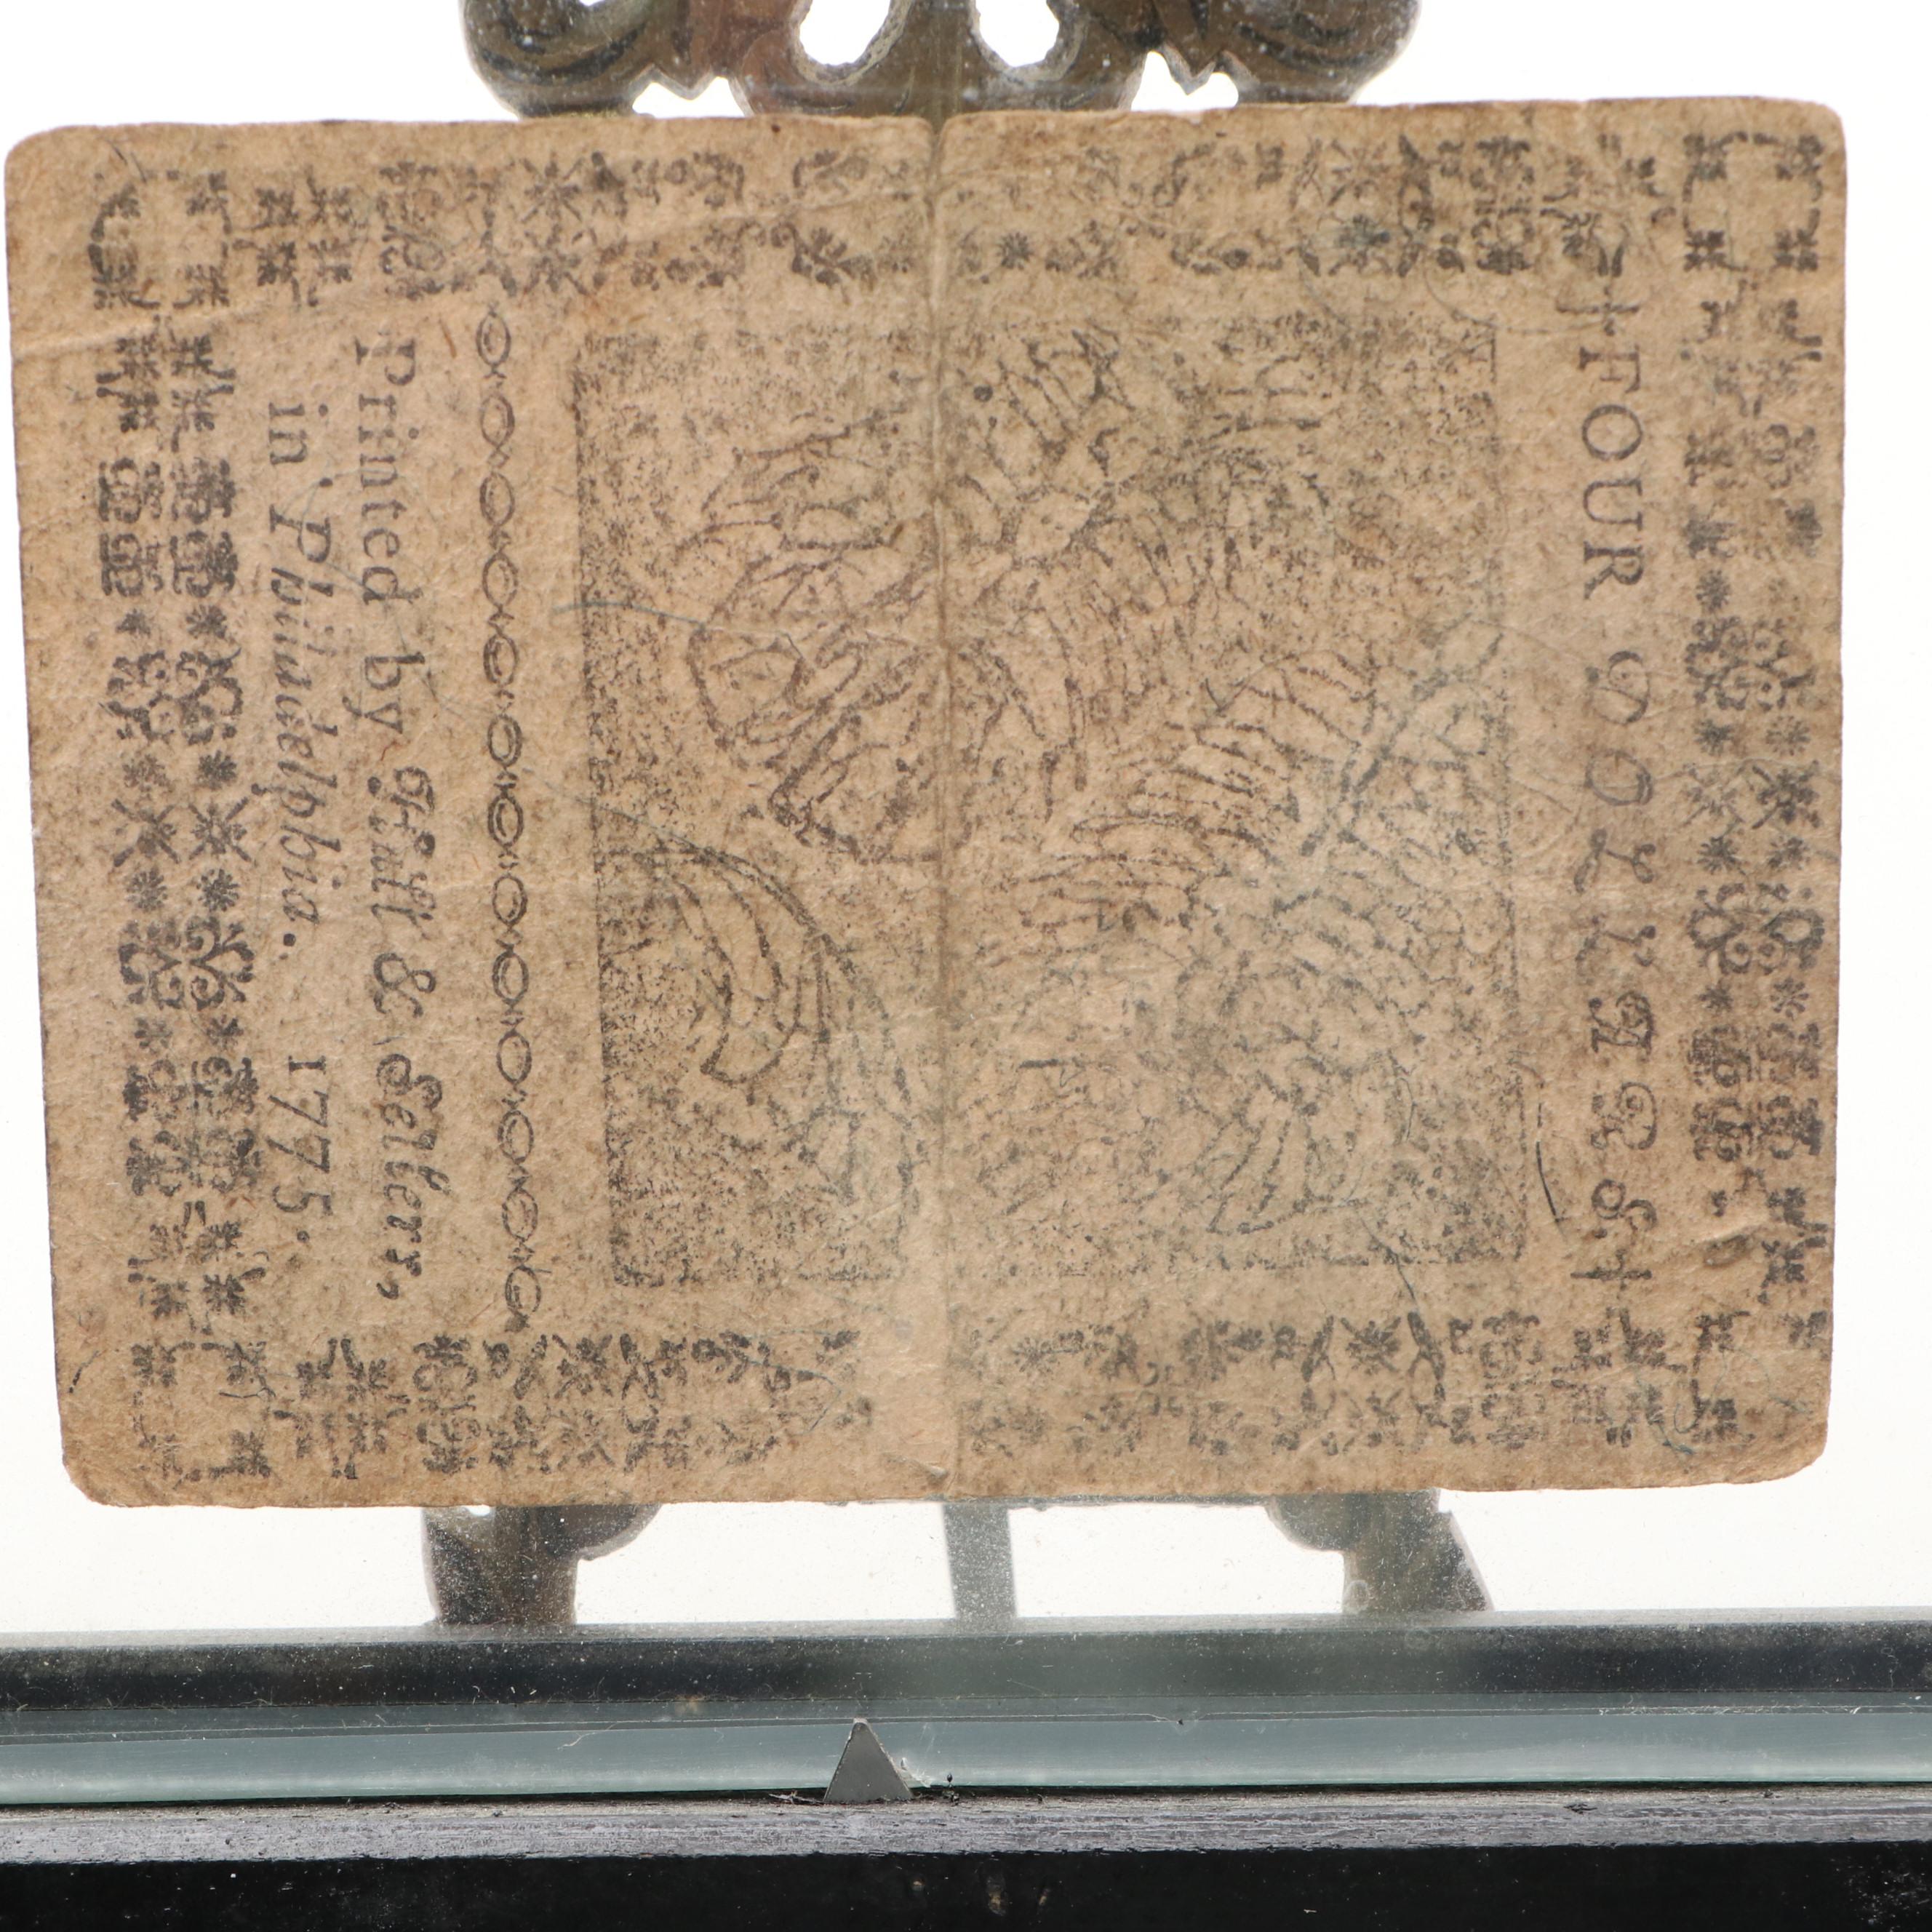 FOUR DOLLARS
Printed by Hall & Sellers,
in Philadelphia. 1775.